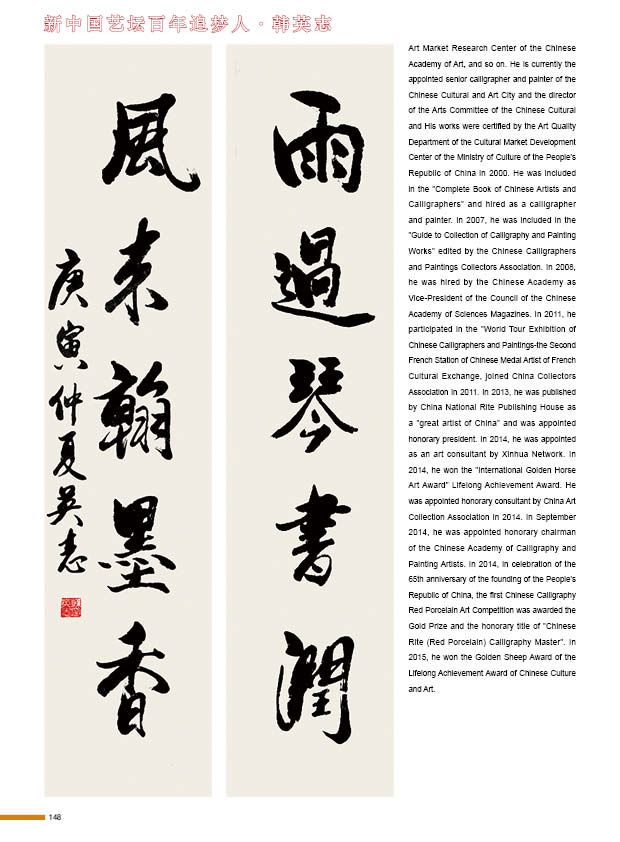 新中国艺坛百年追梦人·韩英志
雨過琴書潤
風来翰墨香
庚寅仲夏英志
Art Market Research Center of the Chinese
Academy of Art, and so on. He is currently the
appointed senior calligrapher and painter of the
Chinese Cultural and Art City and the director
of the Arts Committee of the Chinese Cultural
and His works were certified by the Art Quality
Department of the Cultural Market Development
Center of the Ministry of Culture of the People's
Republic of China in 2000. He was included
in the "Complete Book of Chinese Artists and
Calligraphers" and hired as a calligrapher
and painter. In 2007, he was included in the
"Guide to Collection of Calligraphy and Painting
Works" edited by the Chinese Calligraphers
and Paintings Collectors Association. In 2008,
he was hired by the Chinese Academy as
Vice-President of the Council of the Chinese
Academy of Sciences Magazines. In 2011, he
participated in the "World Tour Exhibition of
Chinese Calligraphers and Paintings-the Second
French Station of Chinese Medal Artist of French
Cultural Exchange, joined China Collectors
Association in 2011. In 2013, he was published
by China National Rite Publishing House as
a "great artist of China" and was appointed
honorary president. In 2014, he was appointed
as an art consultant by Xinhua Network. In
2014, he won the "International Golden Horse
Art Award" Lifelong Achievement Award. He
was appointed honorary consultant by China Art
Collection Association in 2014. In September
2014, he was appointed honorary chairman
of the Chinese Academy of Calligraphy and
Painting Artists. In 2014, in celebration of the
65th anniversary of the founding of the People's
Republic of China, the first Chinese Calligraphy
Red Porcelain Art Competition was awarded the
Gold Prize and the honorary title of "Chinese
Rite (Red Porcelain) Calligraphy Master". In
2015, he won the Golden Sheep Award of the
Lifelong Achievement Award of Chinese Culture
and Art.
148